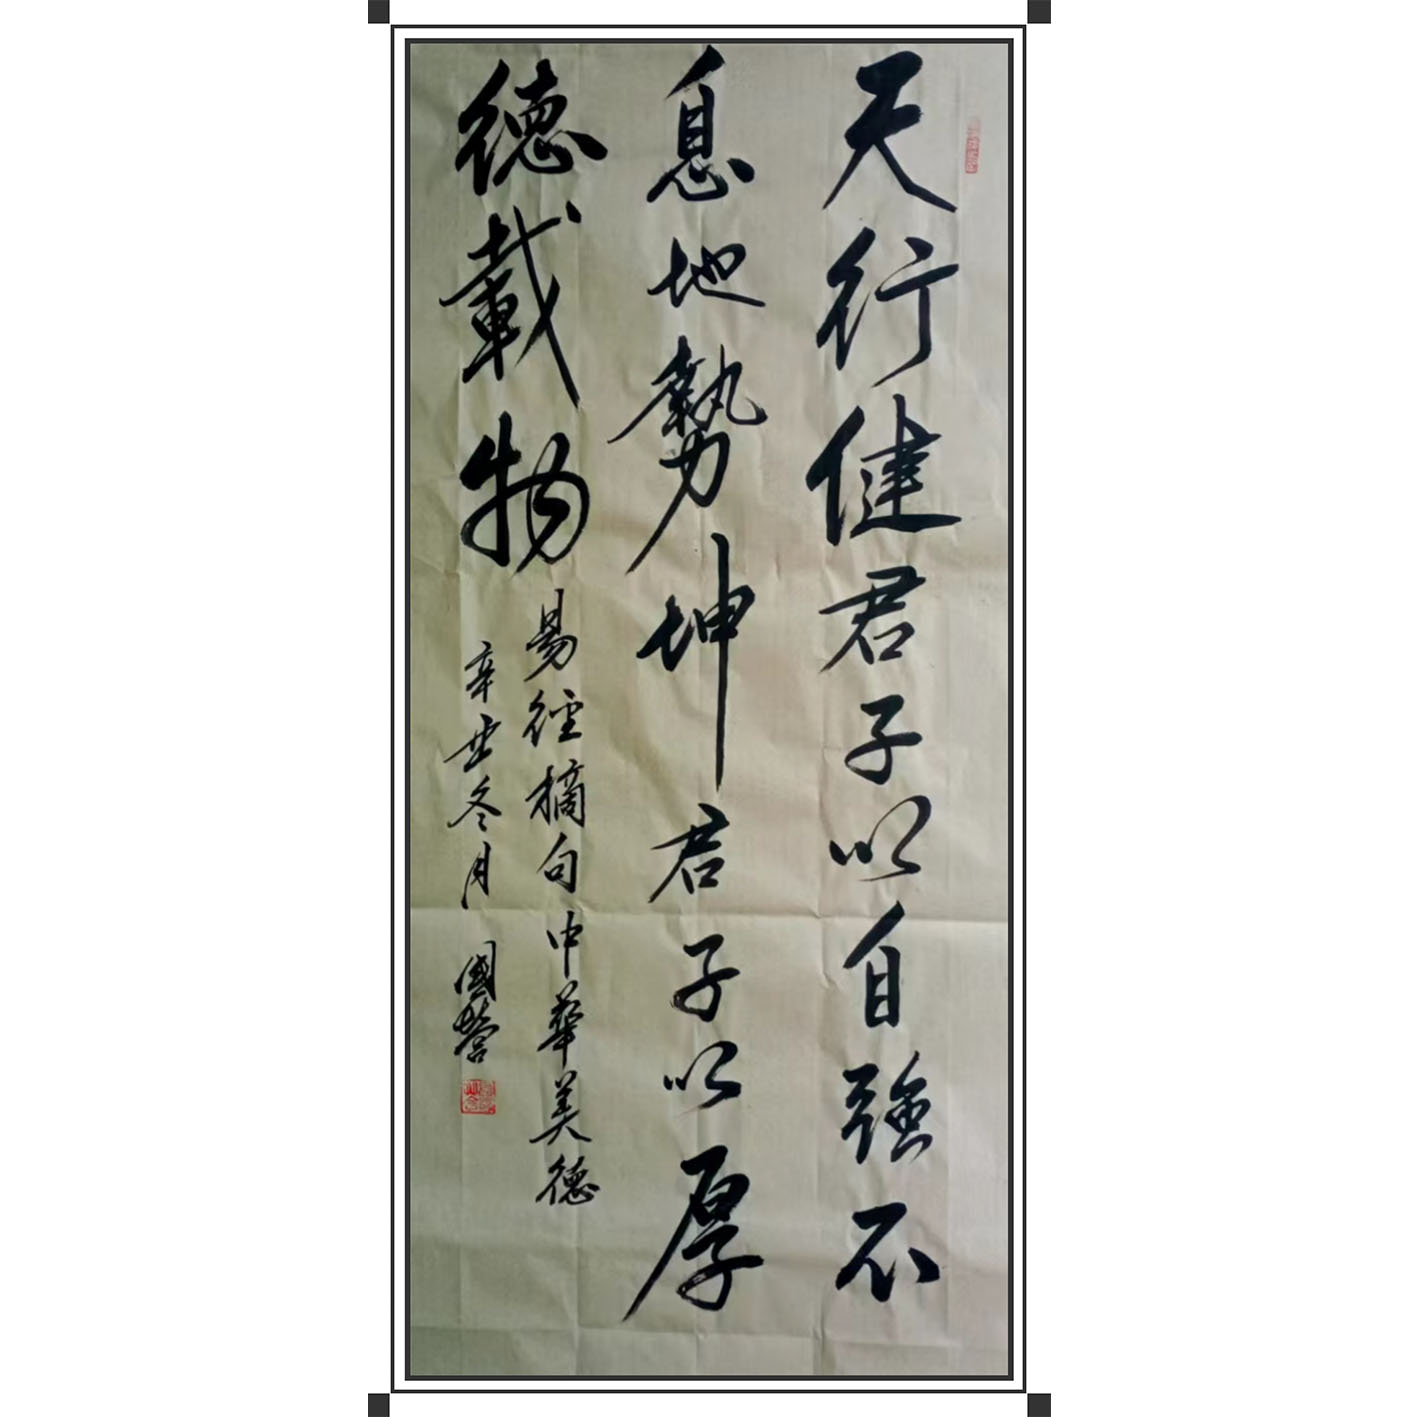 天行健君子以自強不
息地勢坤君子以厚
德載物
易經摘句中華美德
辛丑冬月國營